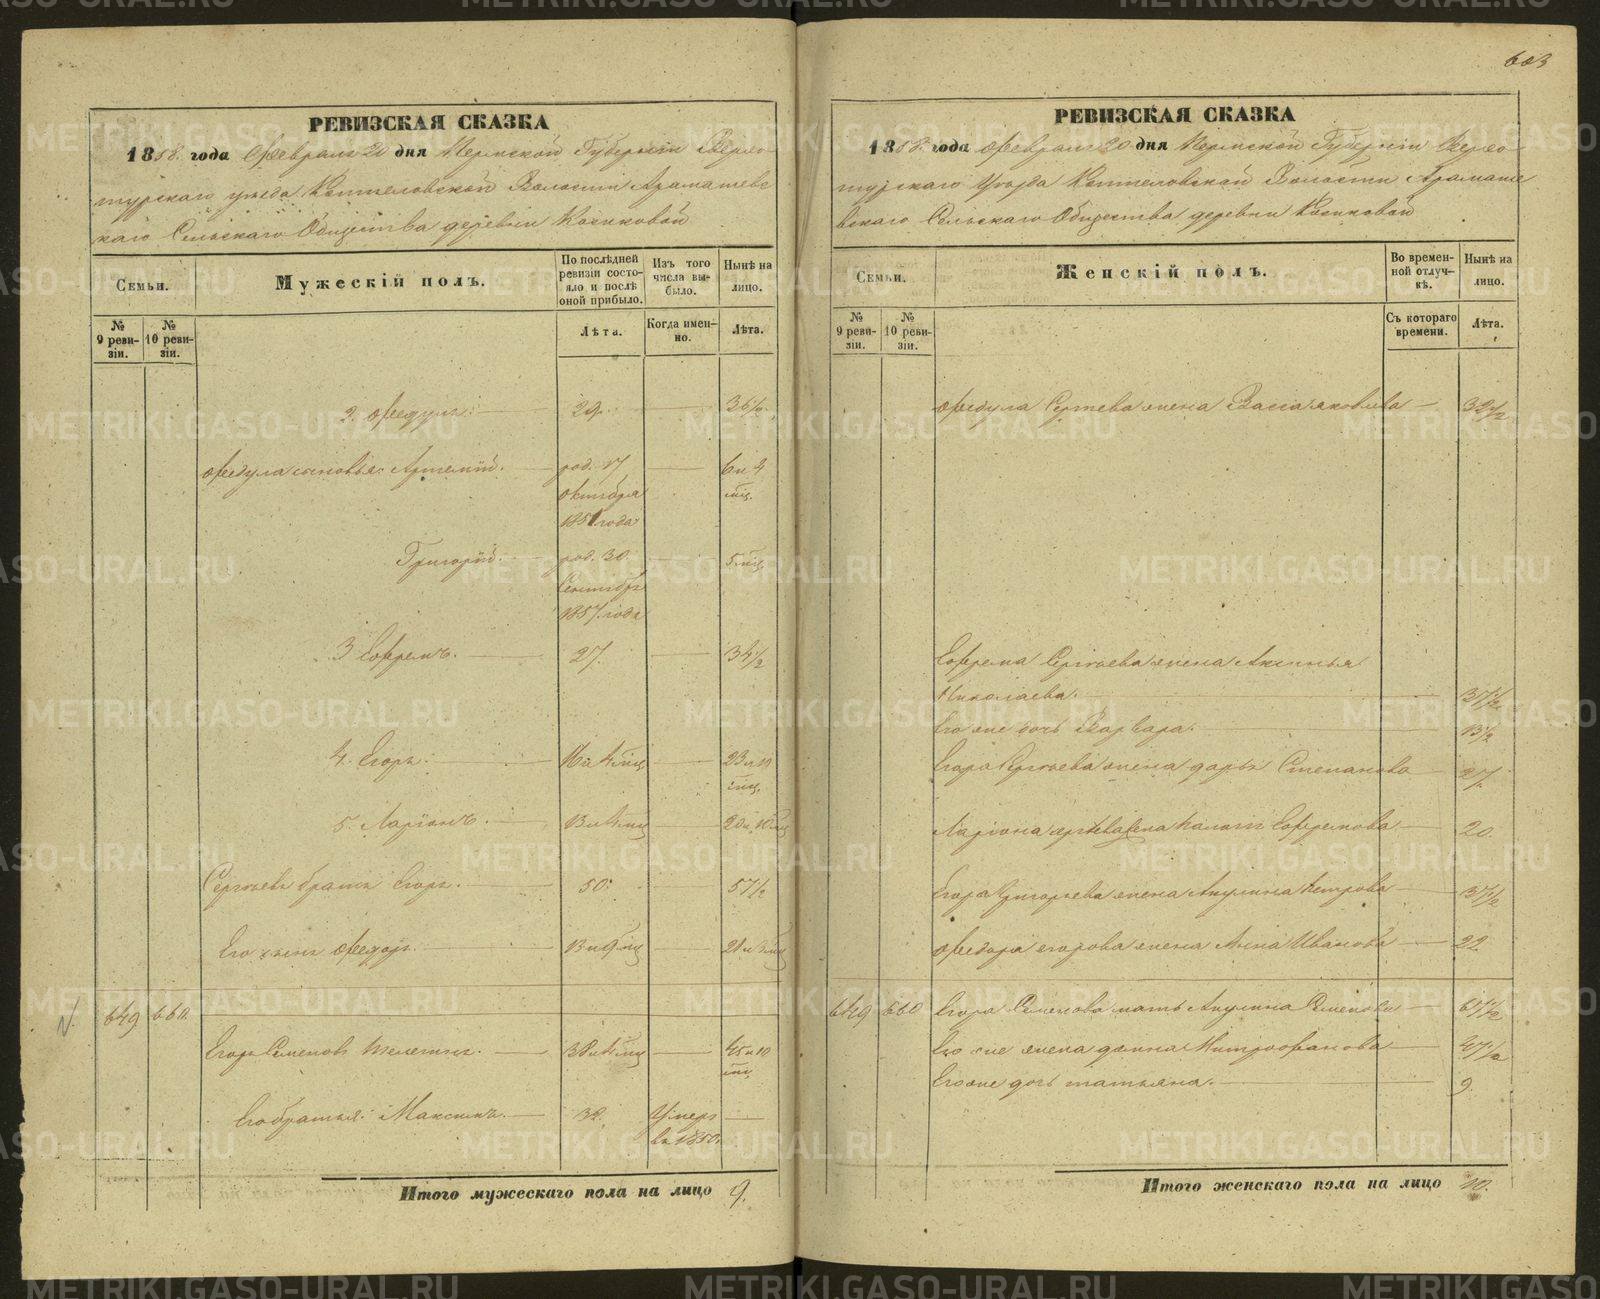 603
РЕВИЗСКАЯ СКАЗКА
1858 года Февраля 20 дня Пермской Губернии Верхо
турскаго уезда Коптеловской Волости Арамашевс
каго Сельскаго Общества деревни Косиковой
Семьи.
Мужескій полъ.
По послѣдней ревизіи состояло и послѣ оной прибыло.
Изъ того числа выбыло.
Нынѣ на лицо.
№ 9 ревизіи.
№ 10 ревизіи.
Лѣта.
Когда именно.
Лѣта.
2. Федулъ. 29. 36½
Федула сыновья: Артемій. род. 17 октября 1851 года 6 и 4 мѣц.
Григорій. род. 30 Сентября 1857 года 5 мѣц
3 Ефремъ. 27. 34½
4. Егоръ. 16 и 4 мѣц 23 и 10 мѣц.
5. Ларіонъ. 13 и 4 мѣц 20 и 10 мѣц
Сергѣевъ братъ Егоръ. 50. 57½
Его сынъ Федоръ. 13 и 9 мѣц 21 и 3 мѣц
649 660.
Егоръ Семеновъ 38 и 4 мѣц 45 и 10 мѣц
Его братья: Максимъ. 32. Умеръ въ 1850.
Итого мужескаго пола на лицо 9.
РЕВИЗСКАЯ СКАЗКА
1858 года Февраля 20 дня Пермской Губерніи Верхо
турскаго Уѣзда Коптеловской Волости Арамаше
вскаго Сельскаго Общества деревни Косиковой
Семьи.
Женскій полъ.
Во временной отлучкѣ.
Нынѣ на лицо.
№ 9 ревизіи.
№ 10 ревизіи.
Съ котораго времени.
Лѣта.
Федула Сергеева жена Васса Яковлева 32½
Ефрема Сергѣева жена Аксинья
Николаева. 37½
Его же дочь Варвара. 13½
Егора Сергѣева жена Дарья Степанова 27.
Ларіона Сергѣева жена Ефремова 20.
Егора Григорьева жена Акулина Петрова 37½
Федора Егорова жена Анна Иванова 22
649 660 Егора Семенова мать Акулина Семенова 61½
Его же жена Домна Митрофанова 47½
Его же дочь Татьяна. 9
Итого женскаго пола на лицо 10.
METRIKI.GASO-URAL.RU